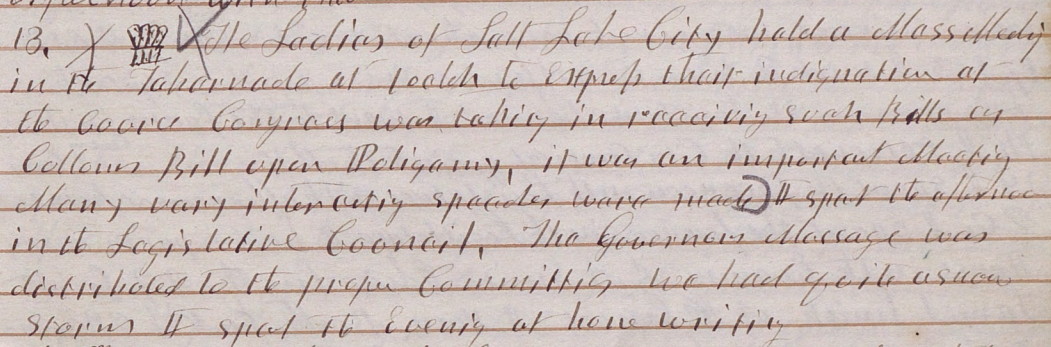 13. X The Ladies of Salt Lake City held a Mass Meeting
in the Tabernacle at 1 oclok to express their indignation at
the Cource Congress was taking in receiving such Bills as
Colloms Bill upon Poligamy, it was an important Meeting
Many very interesting speeches were made) I spent the afternoon
in the Legislative Council, The Governors Message was
distributed to the proper Committies we had quite a snow
storm I spent the Evenig at home writing